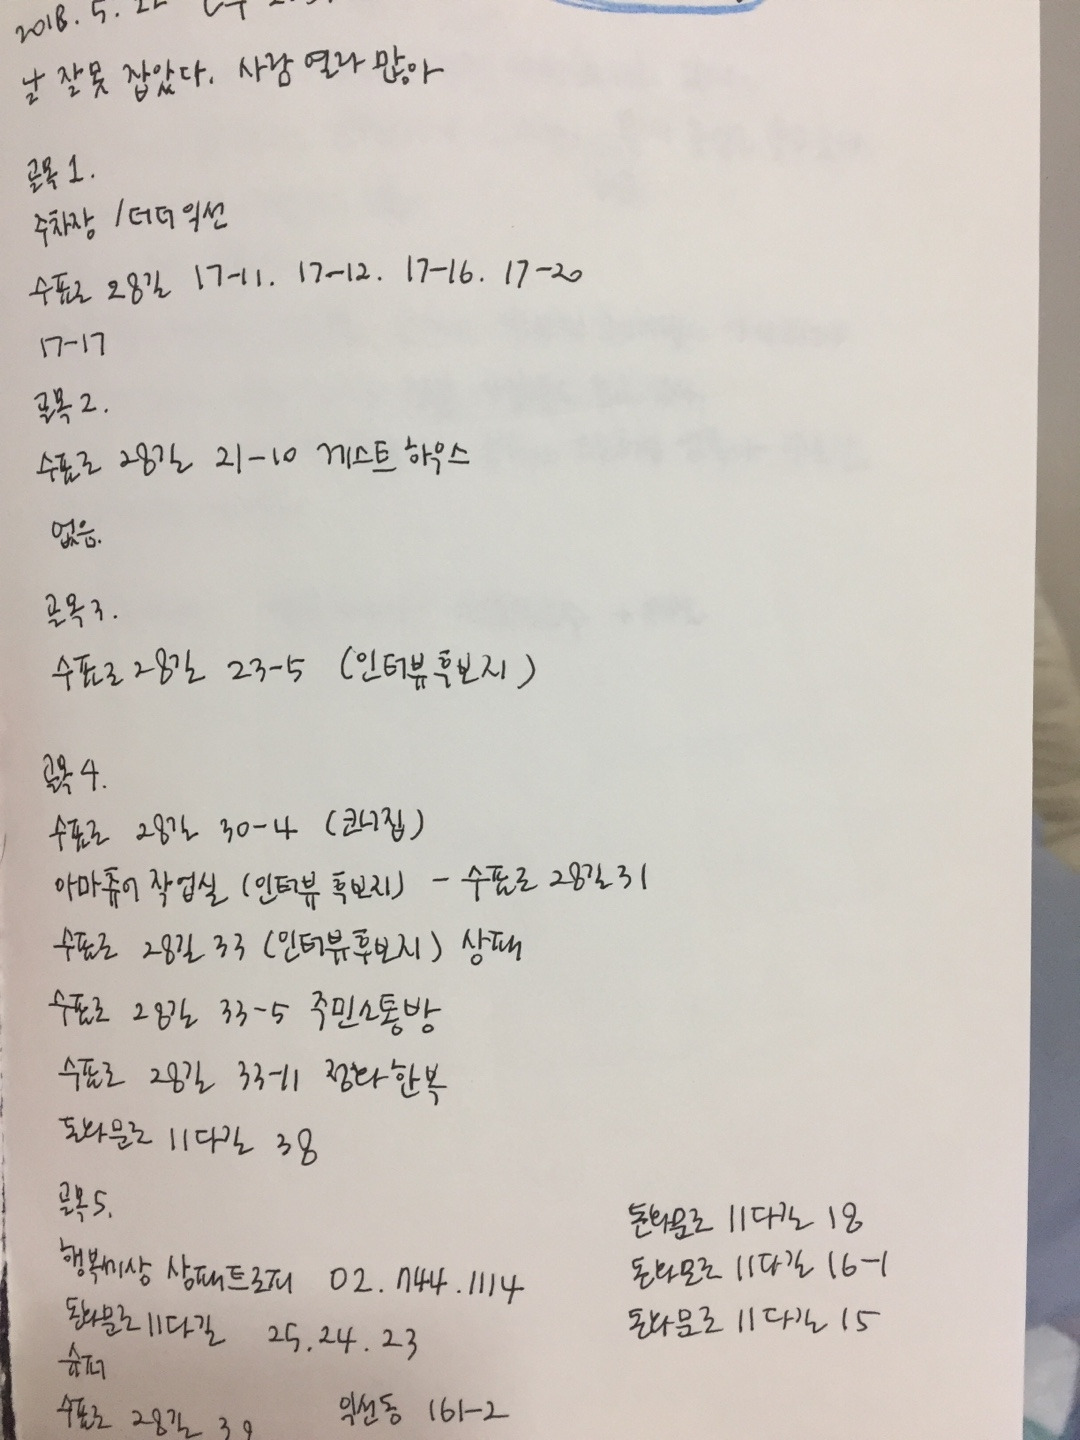 2018. 5. 22
날 잘못 잡았다. 사람 열라 많아
골목 1.
주차장 / 더더익선
수표로 28길 17-11. 17-12. 17-16. 17-20
17-17
골목 2.
수표로 28길 21-10 게스트하우스
없음.
골목 3.
수표로 28길 23-5 (인터뷰후보지)
골목 4.
수표로 28길 30-4 (코너집)
아마츄어 작업실 (인터뷰 후보지) - 수표로 28길 31
수표로 28길 33 (인터뷰후보지) 상패
수표로 28길 33-5 주민소통방
수표로 28길 33-11 한복
돈화문로 11다길 38
골목 5.
행복비상 상패트로피 02.744.1114
돈화문로 11다길 25.24.23
슈퍼
수표로 28길 39 익선동 161-2
돈화문로 11다길 18
돈화문로 11다길 16-1
돈화문로 11다길 15